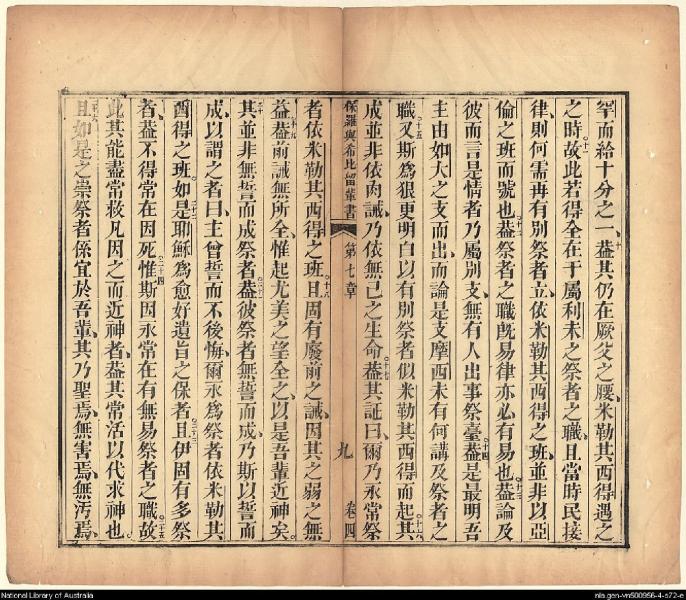 罕而給十分之一、十蓋其仍在厥父之腰、米勒其西得遇之
之時、十一故此若得全在于屬利未之祭者之職、且當時民接
律、則何需再有別祭者立、依米勒其西得之班、並非以亞
倫之班而號也、十二蓋祭者之職既易、律亦必有易也、十三蓋論及
彼而言是情者、乃屬別支、無有人出事祭臺、十四蓋是最明、吾
主由如大之支而出、而論是支、摩西未有何講及祭者之
職、十五又斯為狠更明白、以有別祭者似米勒其西得而起、十六其
成並非依肉誡、乃依無已之生命、十七蓋其証曰、爾乃永常祭
保羅與希比留輩書 第七章 九 卷四
者、依米勒其西得之班、十八且固有廢前之誡、因其之弱之無
益、十九蓋前誡無所全、惟起尤美之望全之、以是吾輩近神矣、
二十其並非無誓而成祭者、二十一蓋彼祭者無誓而成、乃斯以誓而
成、以謂之者曰、主曾誓而不後悔、爾永為祭者依米勒其
西得之班、二十二如是耶穌為愈好遺旨之保者、二十三且伊固有多祭
者、蓋不得常在因死、二十四惟斯因永常在、有無易祭者之職、二十五故
此其能盡常救凡因之而近神者、蓋其常活以代求神也、
二十六且如是之崇祭者係宜於吾輩、其乃聖焉、無害焉、無污焉、
National Library of Australia
nla.gen-vn500956-4-s72-e